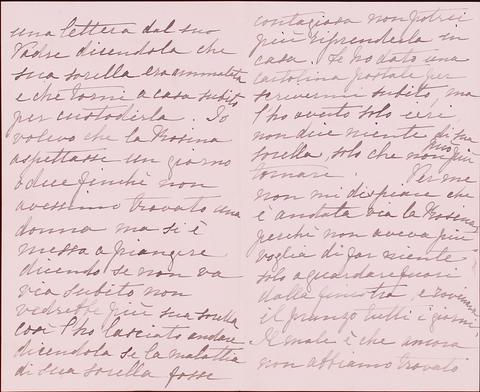 una lettera dal suo
Padre dicendola che
sua sorella era ammalata
e che torni a casa subito
per custodirla. Io
volevo che la Rosina
aspettasse un giorno
o due finchè non
avessimo trovato una
donna ma si è
messa a piangere
dicendo se non va
via subito non
vedrebbe più sua sorella
così l'ho lasciato andare
dicendola se la malattia
di sua sorella fosse
contagiosa non potrei
più riprenderla in
casa. Le ho dato una
cartolina postale per
scrivermi subito, ma
l'ho avuto solo ieri,
non dice niente di sua
sorella, solo che non può più
tornare. Per me
non mi dispiace che
è andata via la Rosina,
perchè non aveva più
voglia di far niente
solo a guardare fuori
dalla finestra, e rovinava
il pranzo tutti i giorni.
Il male è che ancora
non abbiamo trovato